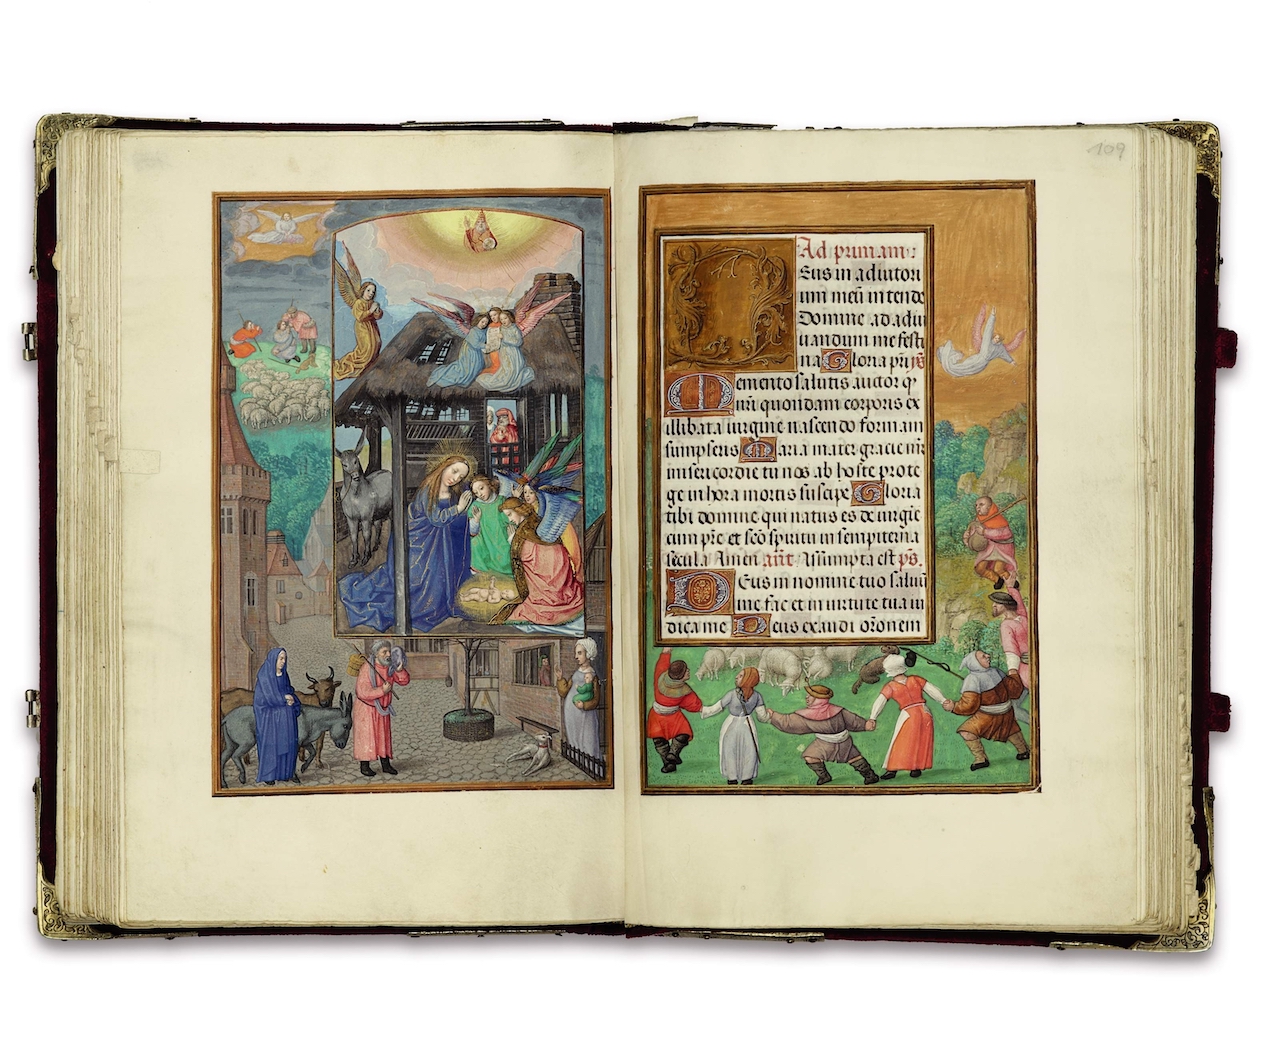 109
Ad primam:
Deus in adiutori
um meū intende
Domine ad adiu
uandum me festi
na Gloria pr̄i ps
Memento salutis auctor q̄
nr̄i quondam corporis ex
illibata uirgine nascendo formam
sumpseris Maria mater gracie m̄r
misericordie tu nos ab hoste prote
ge in hora mortis suscipe Gloria
tibi domine qui natus es de uirgīe
cum pr̄e et sc̄o spiritu in sempiterna
secula Amen an̄t Assumpta est ps.
Deus in nomine tuo saluū
me fac et in uirtute tua iu
dica me Deus exaudi or̄onem